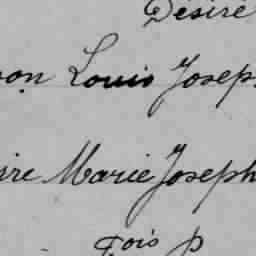 Désiré
on Louis Joseph
ire Marie Joseph
fois p